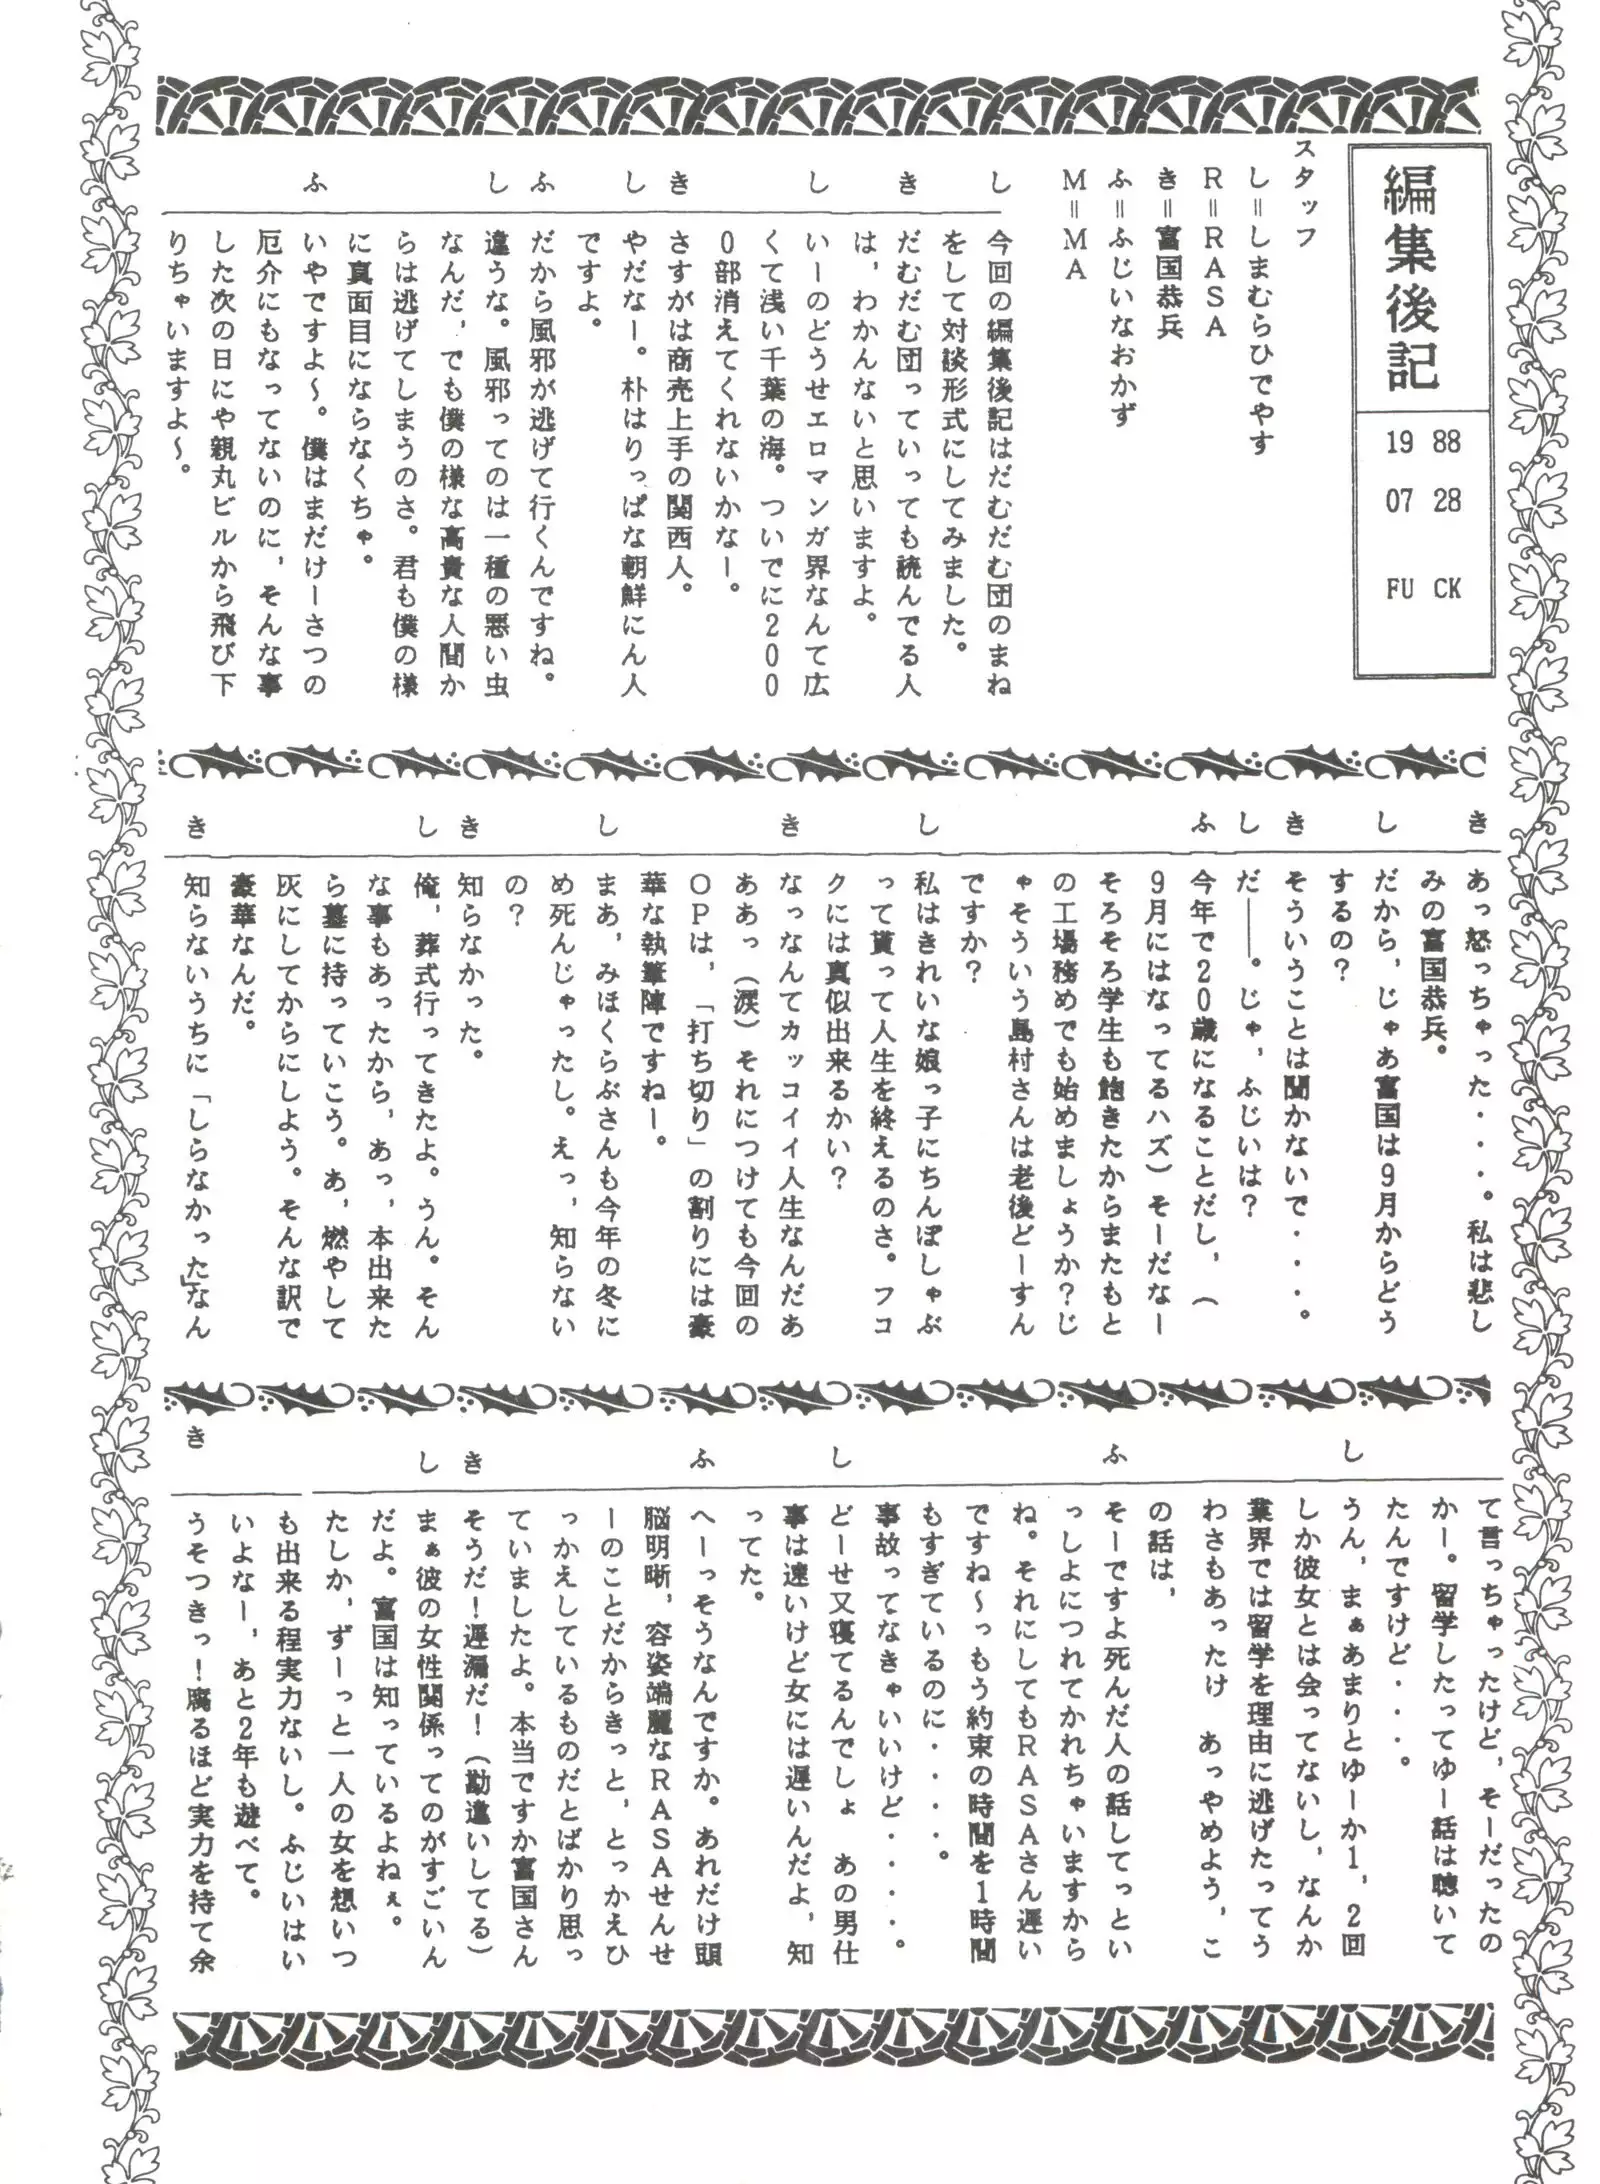 編集後記
19 88
07 28
FU CK
スタッフ
し=しまむらひでやす
R=RASA
き=富国恭兵
ふ=ふじいなおかず
M=MA
し
今回の編集後記はだむだむ団のまね
をして対談形式にしてみました。
き
だむだむ団っていっても読んでる人
は，わかんないと思いますよ。
し
いーのどうせエロマンガ界なんて広
くて浅い千葉の海。ついでに200
0部消えてくれないかなー。
き
さすがは商売上手の関西人。
し
やだなー。朴はりっぱな朝鮮にん人
ですよ。
ふ
だから風邪が逃げて行くんですね。
し
違うな。風邪ってのは一種の悪い虫
なんだ，でも僕の様な高貴な人間か
らは逃げてしまうのさ。君も僕の様
に真面目にならなくちゃ。
ふ
いやですよ～。僕はまだけーさつの
厄介にもなってないのに，そんな事
した次の日にや親丸ビルから飛び下
りちゃいますよ～。
き
あっ怒っちゃった・・・・。私は悲し
みの富国恭兵。
し
だから，じゃあ富国は9月からどう
するの？
き
そういうことは聞かないで・・・・。
し
だ――。じゃ，ふじいは？
ふ
今年で20歳になることだし，（
9月にはなってるハズ）そーだなー
そろそろ学生も飽きたからまたもと
の工場務めでも始めましょうか？じ
ゃそういう島村さんは老後どーすん
ですか？
し
私はきれいな娘っ子にちんぽしゃぶ
って貰って人生を終えるのさ。フコ
クには真似出来るかい？
き
なっなんてカッコイイ人生なんだあ
ああっ（涙）それにつけても今回の
OPは，「打ち切り」の割りには豪
華な執筆陣ですねー。
し
まあ，みほくらぶさんも今年の冬に
め死んじゃったし。えっ，知らない
の？
き
知らなかった。
し
俺，葬式行ってきたよ。うん。そん
な事もあったから，あっ，本出来た
ら墓に持っていこう。あ，燃やして
灰にしてからにしよう。そんな訳で
豪華なんだ。
き
知らないうちに「しらなかった」なん
て言っちゃったけど，そーだったの
かー。留学したってゆー話は聴いて
たんですけど・・・。
し
うん，まぁあまりとゆーか1，2回
しか彼女とは会ってないし，なんか
業界では留学を理由に逃げたってう
わさもあったけ　あっやめよう，こ
の話は，
ふ
そーですよ死んだ人の話してっとい
っしよにつれてかれちゃいますから
ね。それにしてもRASAさん遅い
ですね～っもう約束の時間を1時間
もすぎているのに・・・・。
事故ってなきゃいいけど・・・・。
し
どーせ又寝てるんでしょ　あの男仕
事は速いけど女には遅いんだよ，知
ってた。
ふ
へーっそうなんですか。あれだけ頭
脳明晰，容姿端麗なRASAせんせ
ーのことだからきっと，とっかえひ
っかえしているものだとばかり思っ
ていましたよ。本当ですか富国さん
き
そうだ！遅漏だ！（勘違いしてる）
し
まぁ彼の女性関係ってのがすごいん
だよ。富国は知っているよねぇ。
たしか，ずーっと一人の女を想いつ
も出来る程実力ないし。ふじいはい
いよなー，あと2年も遊べて。
き
うそつきっ！腐るほど実力を持て余